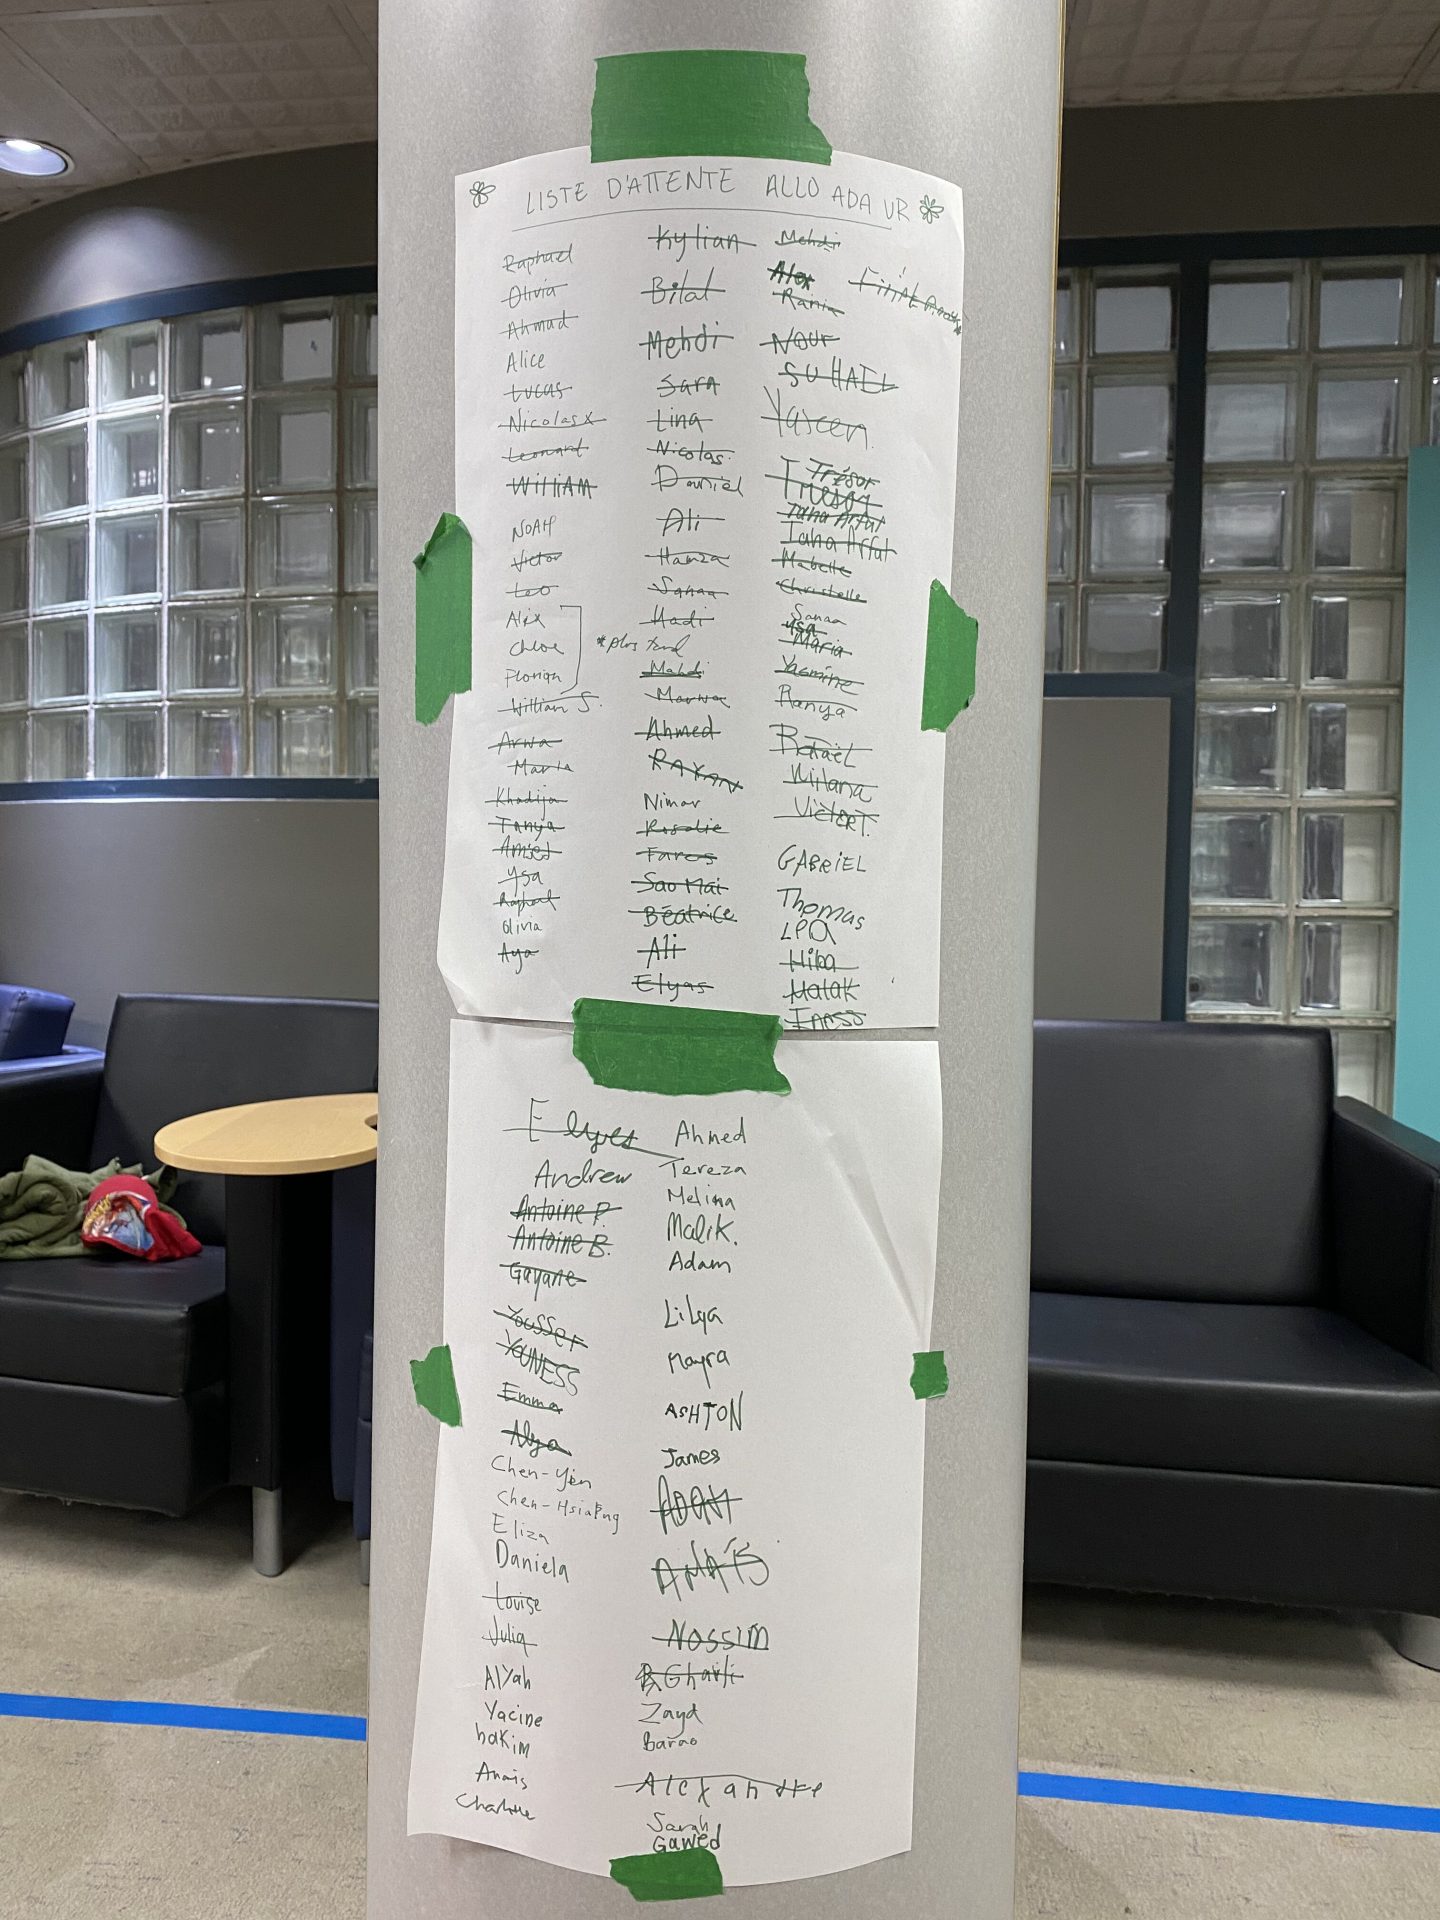 LISTE D'ATTENTE ALLO ADA VR
Raphael
Olivia
Ahmad
Alice
Lucas
Nicolas
Leonard
WilliAM
NOAH
Victor
Leo
Alix
Chloe
Florian
*plus tard
William S.
Arwa
Maria
Khadija
Tanya
Ysa
Raphael
Olivia
Aya
Kylian
Bilal
Mehdi
Sara
Lina
Nicolas
Daniel
Ali
Hamza
Sanaa
Hadi
Mahdi
Marwa
Ahmed
RAYAN
Nimar
Rosalie
Fares
Sao Mai
Béatrice
Ali
Elyas
Mehdi
Alex
Rania
NOUR
SUHAEL
Yascen
Trésor
Taha Arfat
Taha Arfat
Mabelle
Christelle
Sanaa
Ysa
Maria
Yasmine
Ranya
Rafaël
Milana
VictorT.
GABRiEL
Thomas
LéA
Hiba
Malak
Iness
Elyes
Andrew
Antoine P.
Antoine B.
Gayane
YOUSSEF
YOUNESS
Emma
Alya
Chen-Yen
Eliza
Daniela
Louise
Julia
AlYah
Yacine
hakim
Anais
Charlotte
Ahmed
Tereza
Melina
Malik.
Adam
Lilya
Mayra
ASHTON
James
ADAM
ANAÏS
NOSSIM
Zayd
Alexandre
Sarah
Gawed